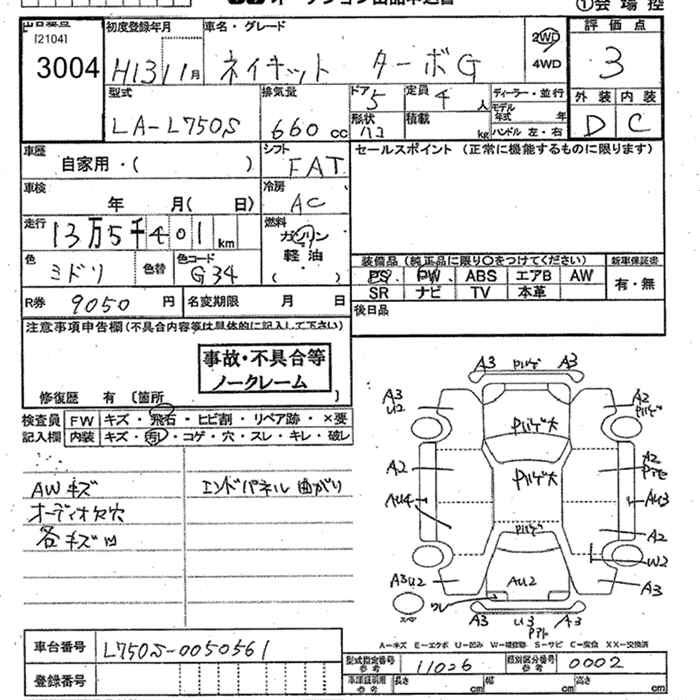 [2104]
3004
初度登録年月
H13 11月
車名・グレード
ネイキット ターボG
2WD
4WD
評価点
3
型式
LA-L750S
排気量
660 cc
ドア 5
定員 4 人
ディーラー・並行
モデル年式 年
形状 ハコ
積載 kg
ハンドル 左・右
外装 内装
D C
車歴
自家用・( )
シフト
FAT
セールスポイント (正常に機能するものに限ります)
車検
年 月( 日)
冷房
AC
走行
13万5千401 km
燃料
ガソリン
軽油
( )
色
ミドリ
色替
色コード
G34
装備品 (純正品に限り○をつけてください)
PS PW ABS エアB AW
SR ナビ TV 本革
新車保証書
有・無
R券 9050 円
名変期限 月 日
後日品
注意事項申告欄(不具合内容等は具体的に記入して下さい)
事故・不具合等
ノークレーム
修復歴 有 〔箇所 〕
検査員
記入欄
FW キズ・飛石・ヒビ割・リペア跡・×要
内装 キズ・汚・コゲ・穴・スレ・キレ・破レ
AWキズ
エンドパネル曲がり
オーディオ欠穴
各キズ凹
A3 A3
A3
U2
A2
A2
A2
AU4
AU3
A2
W2
A3U2
AU2
A3
A3 U3 A3
A—キズ E—エクボ U—凹み W—補修跡 S—サビ C—腐食 XX—交換済
車台番号 L750S-0050561
型式指定番号 参考 11026
類別区分番号 参考 0002
登録番号
長さ cm 幅 cm 高さ cm